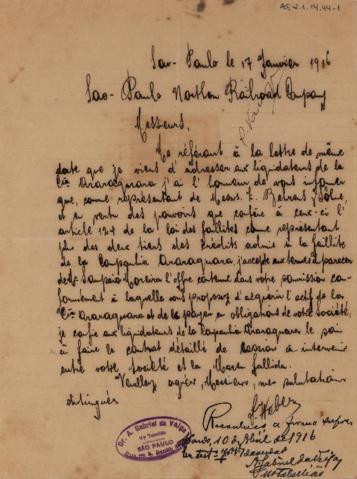 AS,2.1.14.44-1
Sao-Paulo le 17 Janvier 1916
Sao-Paulo Northern Railroad Company
Messieurs,
Me référant à la lettre de même
date que je viens d'adresser aux liquidateurs de la
Cie Araraquara j'ai l'honneur de vous informer
que, comme représentant de Messrs
et en vertu des pouvoirs que confère à ceux-ci l'
article 124 de la loi des faillites comme représentant
plus des deux tiers des crédits admis à la faillite
de la Companhia Araraquara j'accepte aux termes
de Sampaio Moreira l'offre contenue dans votre soumission con-
formément à laquelle vous proposez d'acquérir l'actif de la
Cie Araraquara et de la payer en obligations de votre société;
je aux liquidateurs de la Companhia Araraquara le soin
à faire le contrat détaillé de cession à intervenir
entre votre société et la Masse faillie.
Veuillez agréer, Messieurs, mes salutations
distinguées
Reconheço a firma supra
10 de Abril de 1916
Em test da verdade
Gabriel da Veiga
Tabellião
Dr. A. Gabriel da Veiga
Tabellião
SÃO PAULO